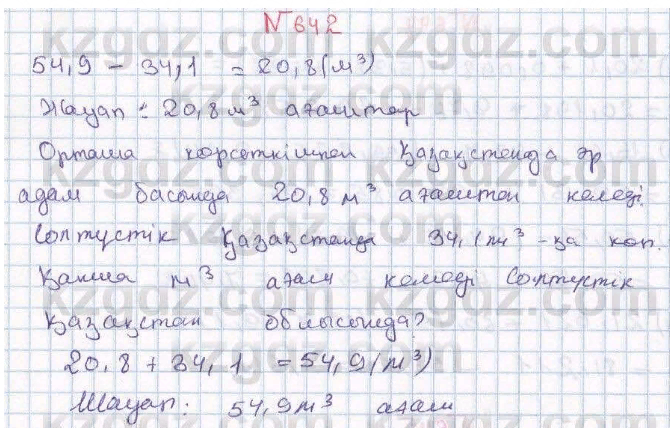 N 642
54,9 - 34,1 = 20,8 (м³)
Жауап: 20,8 м³ ағаштар
Орташа көрсеткішпен Қазақстанда әр
адам басында 20,8 м³ ағаштан келеді.
Солтүстік Қазақстанда 34,1 м³ -қа көп.
Қанша м³ ағаш келеді Солтүстік
Қазақстан облысында?
20,8 + 34,1 = 54,9 (м³)
Жауап: 54,9 м³ ағаш